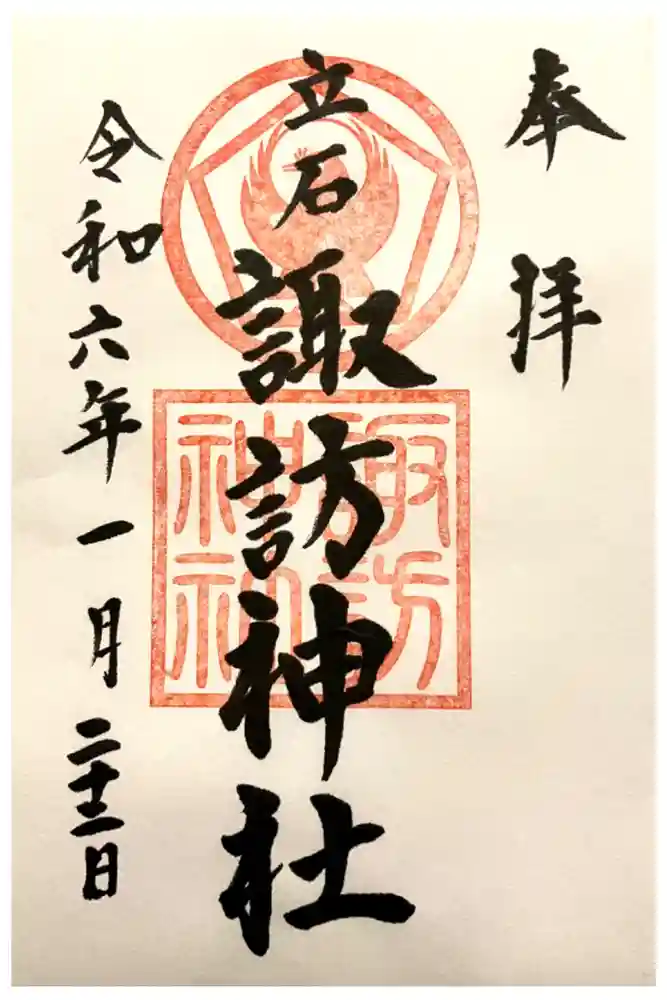 奉拝
立石
諏訪神社
令和六年一月二十二日
諏訪
神社